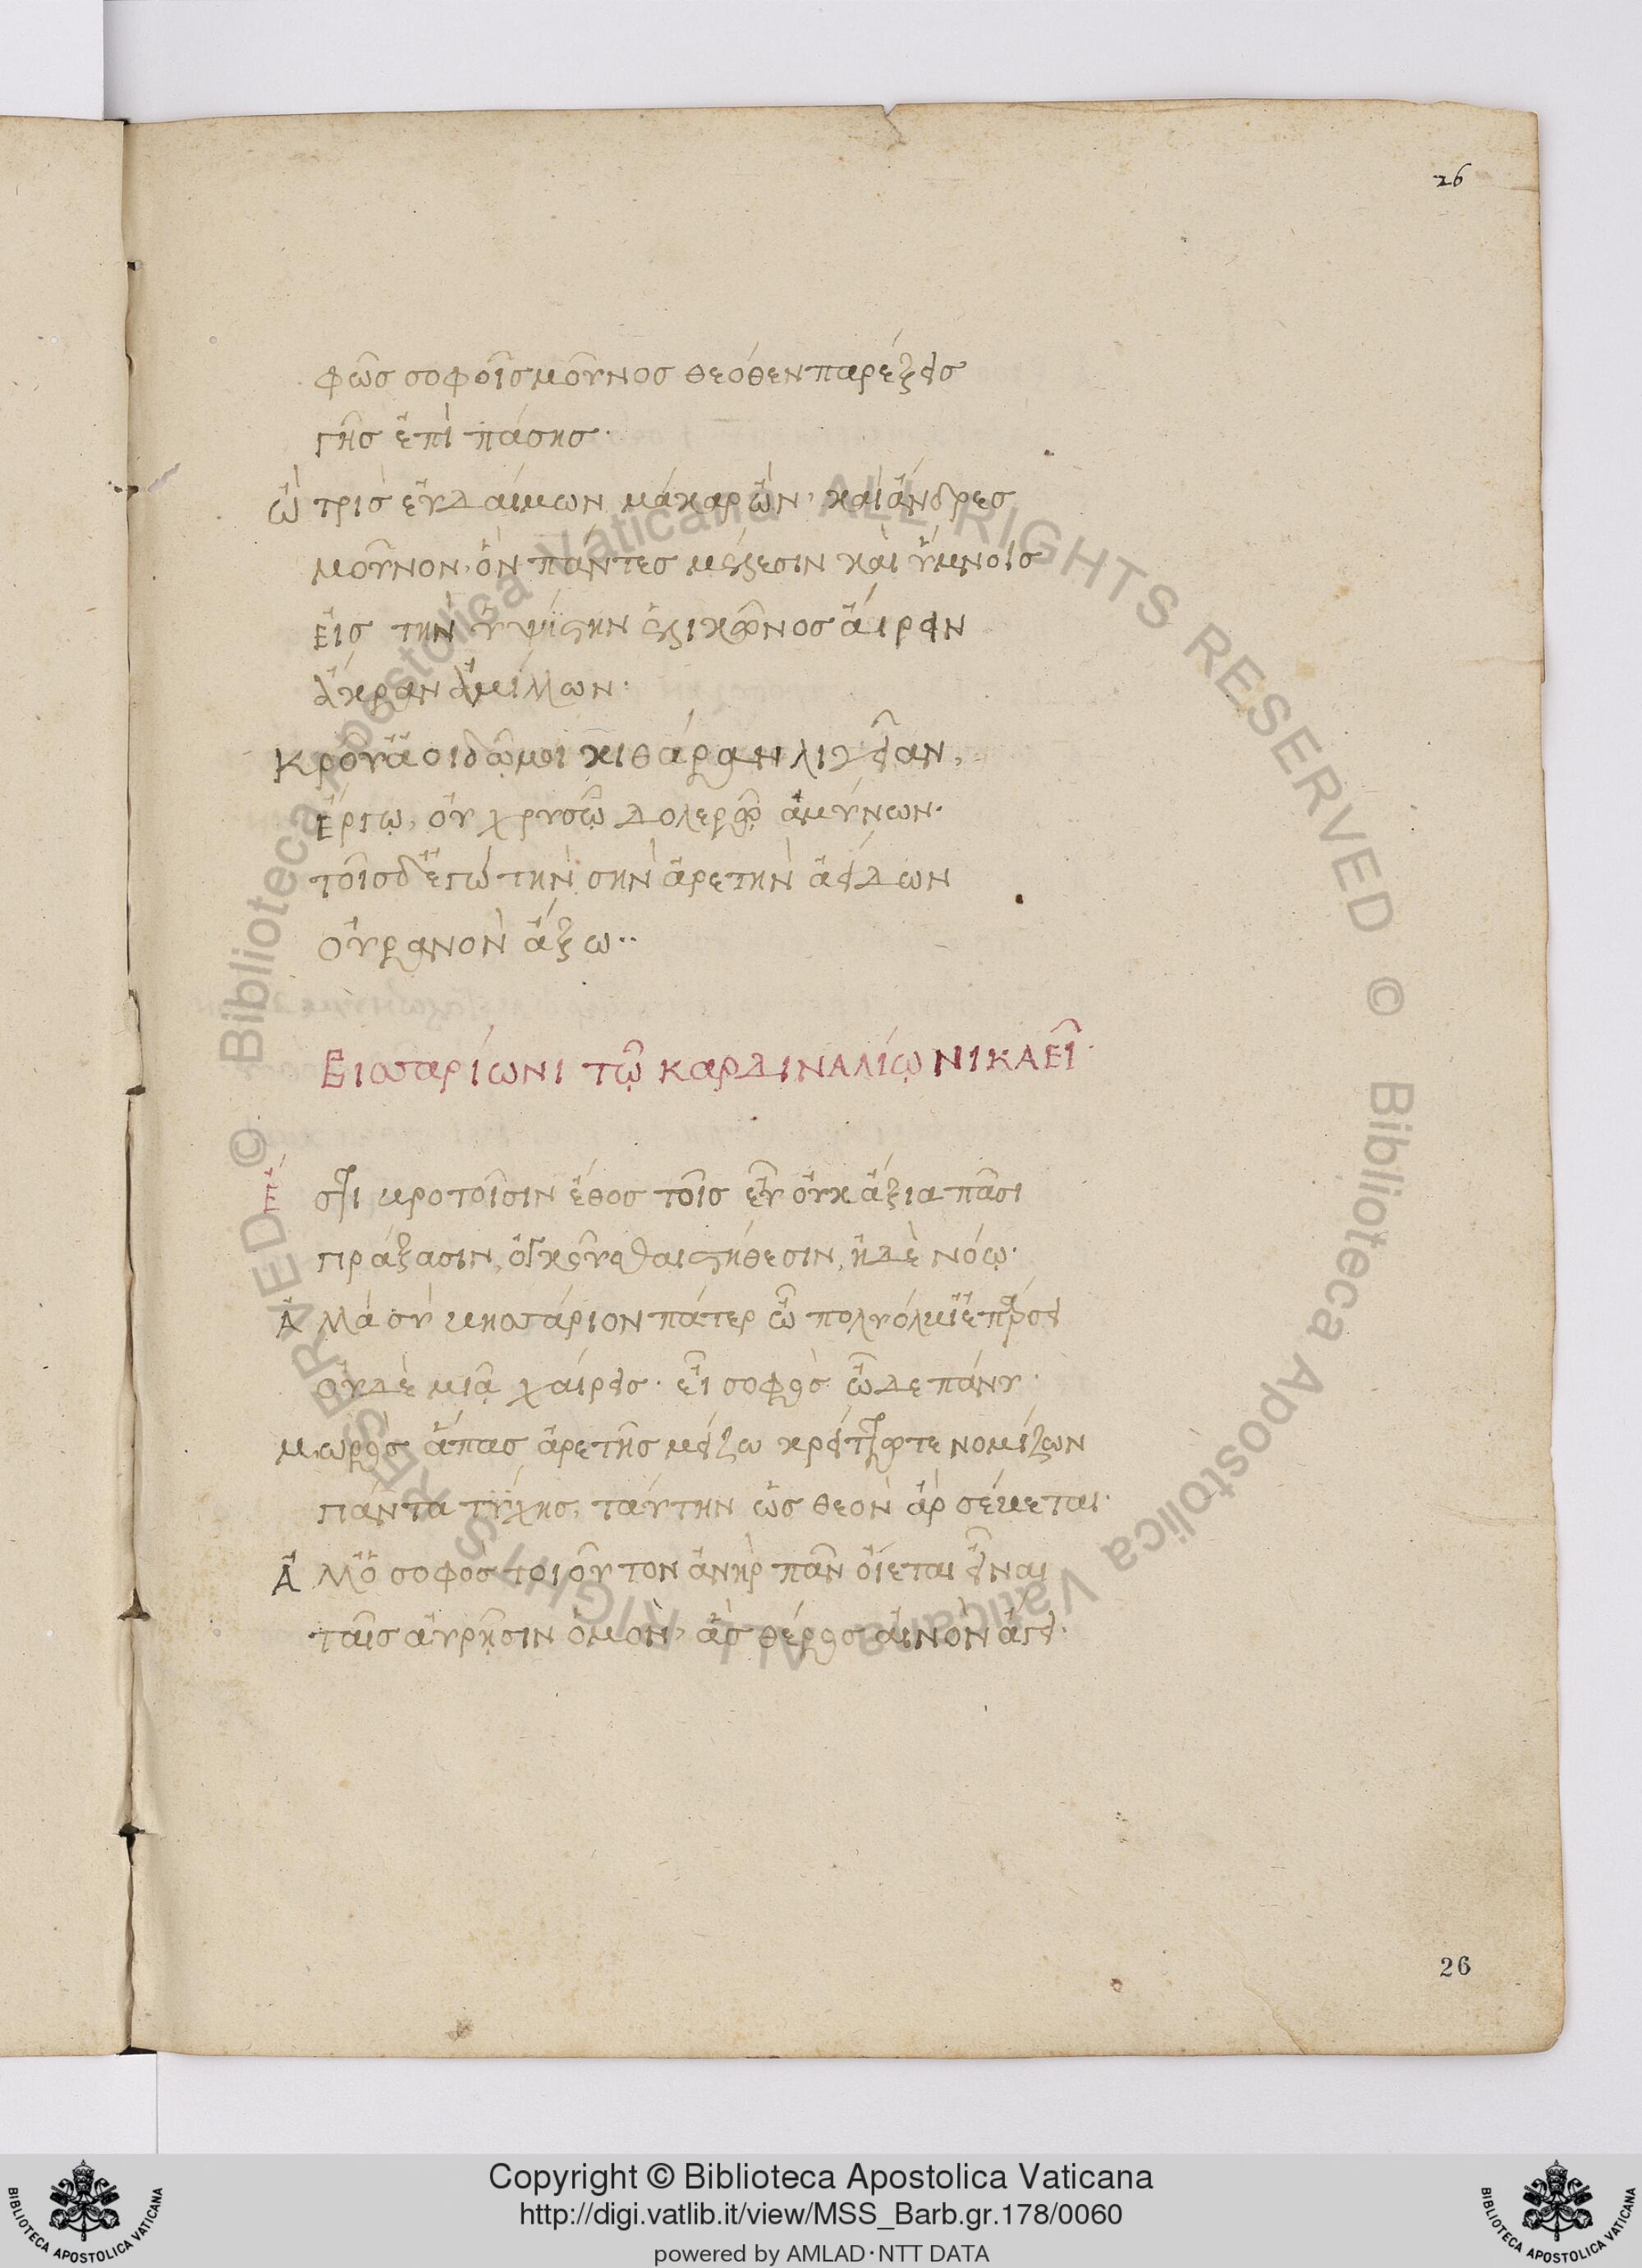 26
φῶς σοφοῖς μοῦνος θεόθεν παρέξεις
γῆς ἐπὶ πάσης·
Ὢ τρὶς εὐδαίμων μάκαρ ὢν, καὶ ἄνδρες
μοῦνον, ὃν πάντες μέλεσιν καὶ ὕμνοις
εἰς τὴν ὑψίστην ἑλικῶνος αἴρειν
ἄκραν
Κροῦ ἀοιδῷ μοι κιθάραν λιγεῖαν,
ἔργῳ, οὐ χρυσῷ δολερῷ ἀμύνων·
τοῖσδ' ἐγὼ τὴν σὴν ἀρετὴν ἀείδων
οὐρανὸν ἄξω··
Βισσαρίωνι τῷ καρδιναλίῳ ΝΙΚΑΕΙ·
Ἔστι βροτοῖσιν ἔθος τοῖς εὖ οὐκ ἄξια πᾶσι
πράξασιν, στήθεσιν, ἠδὲ νόῳ·
Ἀλλὰ σὺ βησσάριον πάτερ ὦ
οὐδὲ μιᾷ χαίρεις· εἶ σοφὸς ὧδε πάνυ·
Μωρὸς ἅπας ἀρετῆς μείζω κρείττω τε νομίζων
πάντα τύχης, ταύτην ὡς θεὸν ἂρ σέβεται·
Ἀλλ' ὁ σοφὸς τοιοῦτον ἀνὴρ πᾶν οἴεται εἶναι
ταῖς αὔρῃσιν ὁμὸν, ἃς θέρος αἰνὸν ἄγει·
26
Copyright © Biblioteca Apostolica Vaticana
http://digi.vatlib.it/view/MSS_Barb.gr.178/0060
powered by AMLAD·NTT DATA
BIBLIOTECA APOSTOLICA VATICANA
BIBLIOTECA APOSTOLICA VATICANA
© Biblioteca Apostolica Vaticana ALL RIGHTS RESERVED © Biblioteca Apostolica Vaticana ALL RIGHTS RESERVED